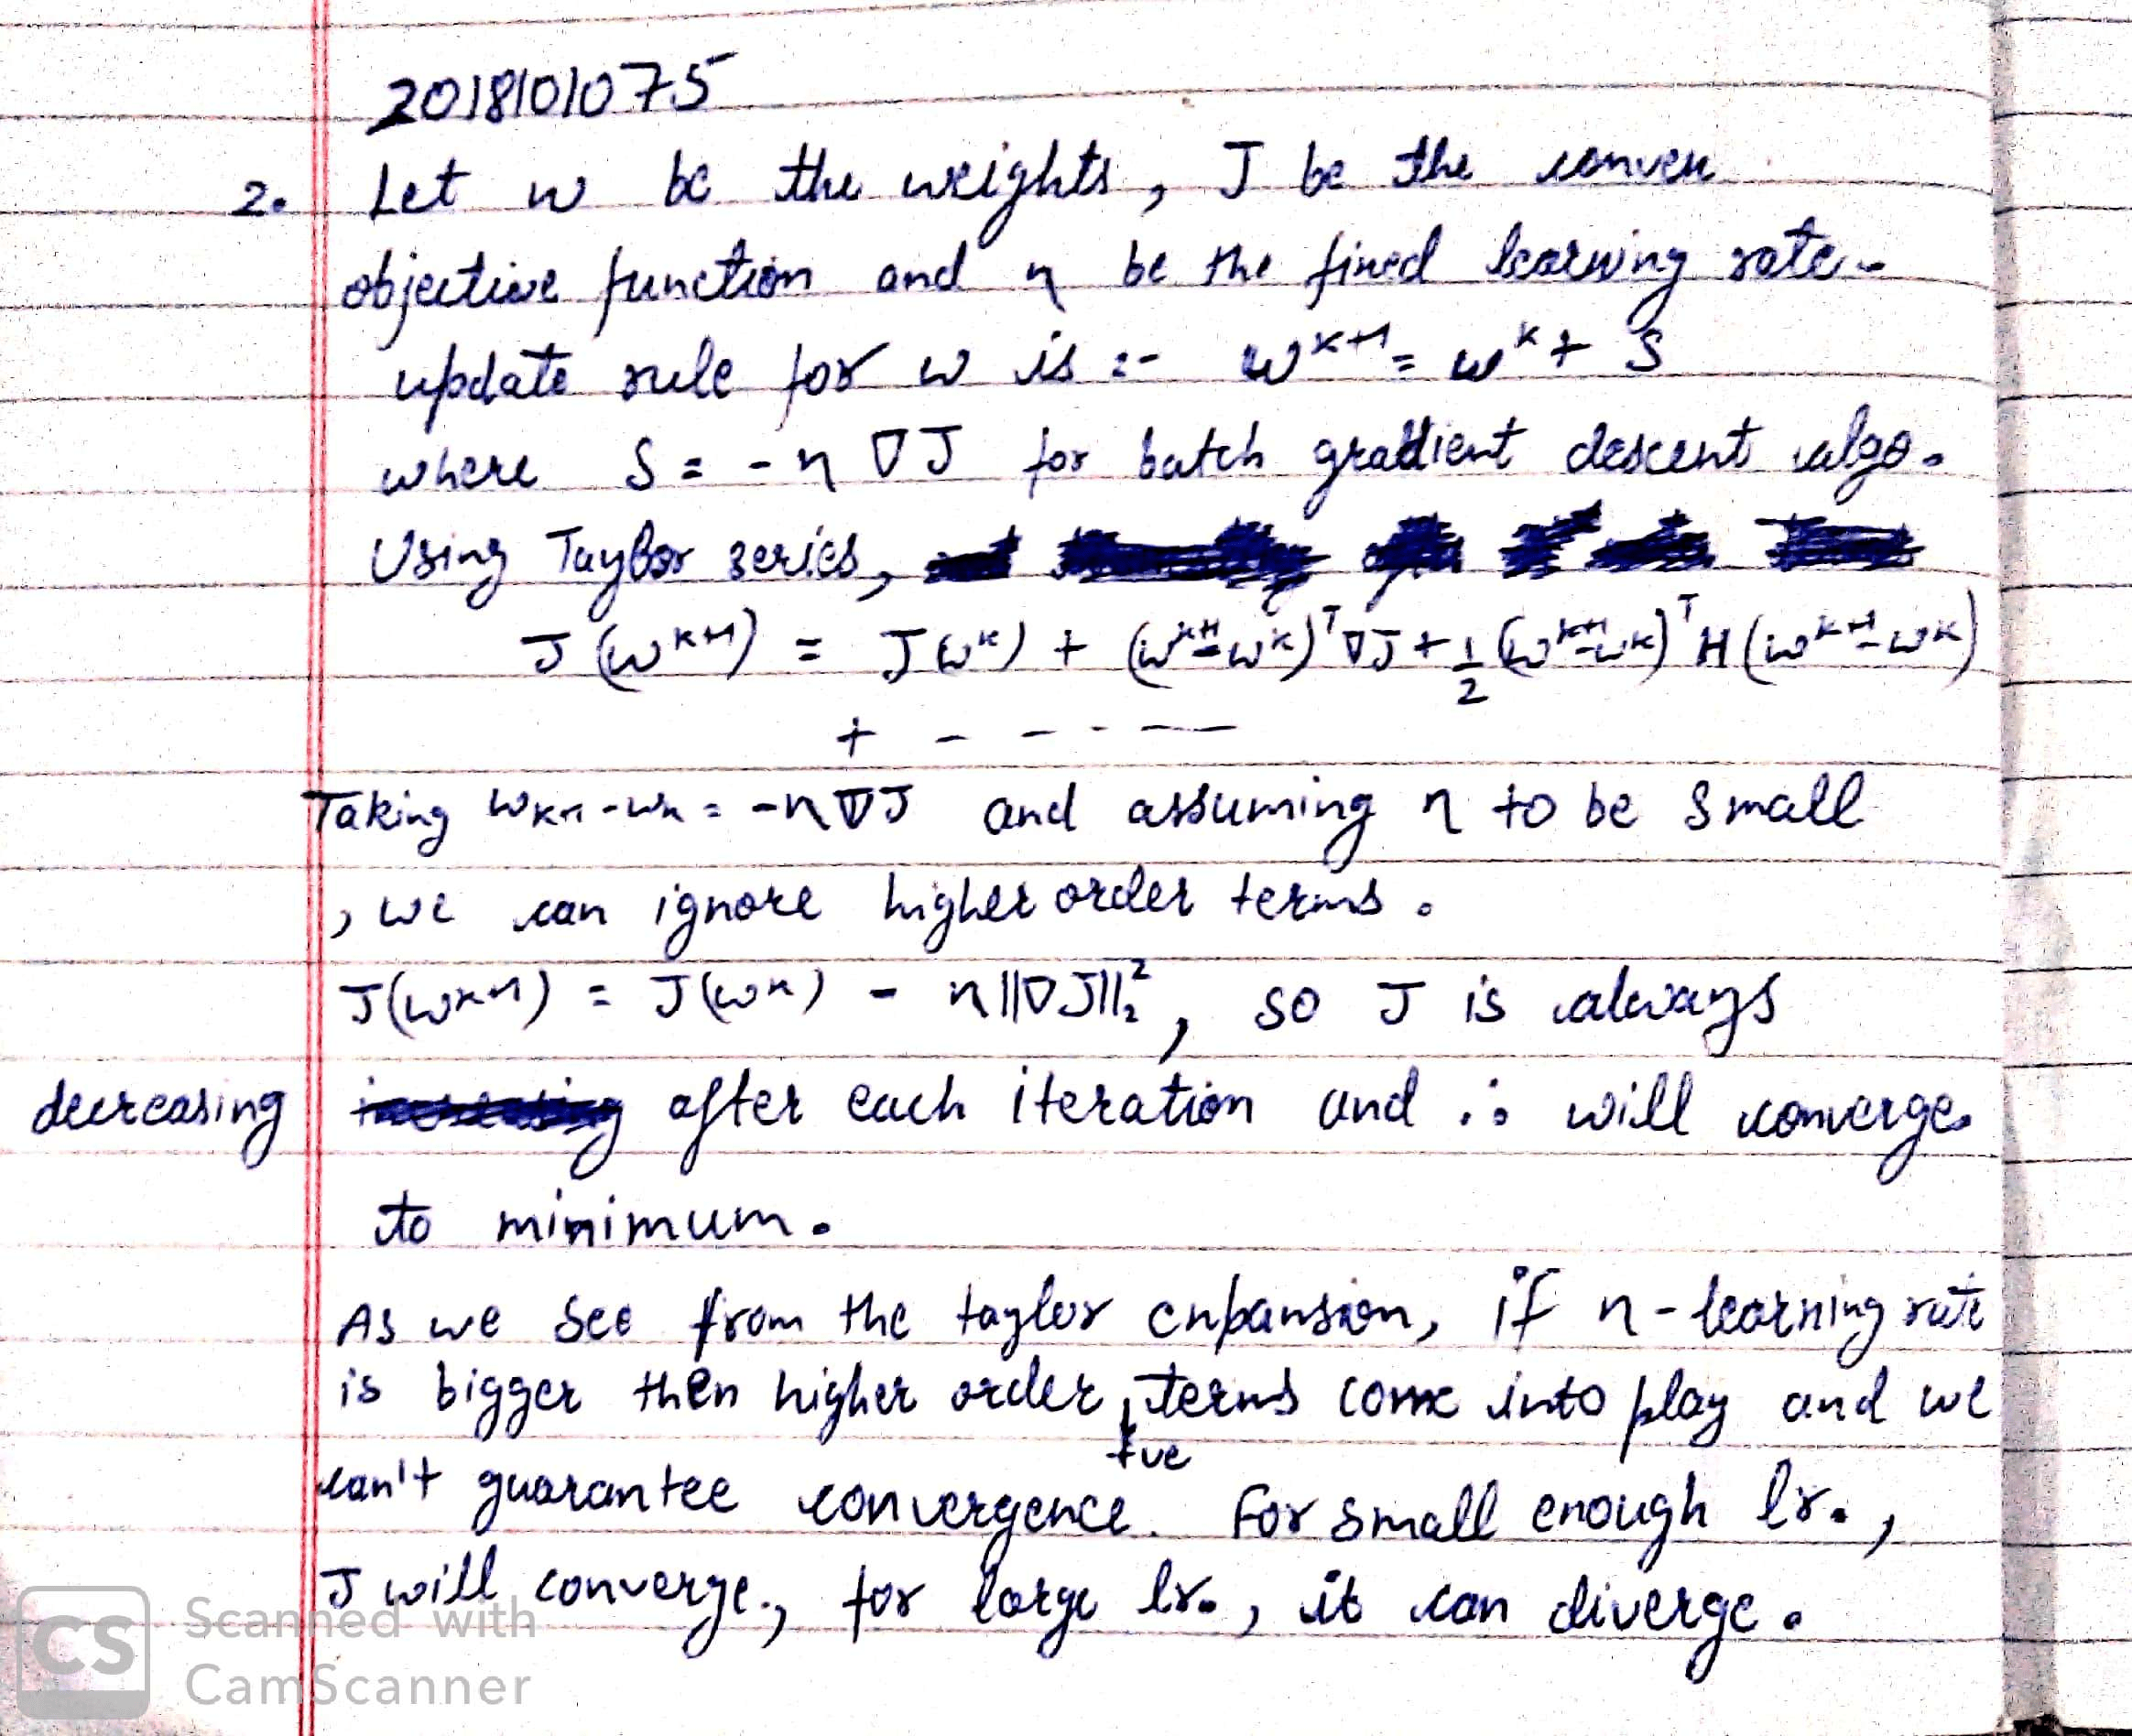 2018101075
2. Let w be the weights, J be the convex
objective function and η be the fixed learning rate.
update rule for w is :- w^{k+1} = w^k + s
where s = - η ∇J for batch gradient descent algo.
Using Taylor series,
J(w^{k+1}) = J(w^k) + (w^{k+1} - w^k)^T ∇J + 1/2 (w^{k+1} - w^k)^T H (w^{k+1} - w^k)
+ - - - - —
Taking w_{k+1} - w_k = -η∇J and assuming η to be small
, we can ignore higher order terms.
J(w^{k+1}) = J(w^k) - η||∇J||₂², so J is always
decreasing after each iteration and ∴ will converge
to minimum.
As we see from the taylor expansion, if η - learning rate
is bigger then higher order +ve terms come into play and we
can't guarantee convergence. For small enough lr.,
J will converge., for large lr., it can diverge.
CS Scanned with
CamScanner